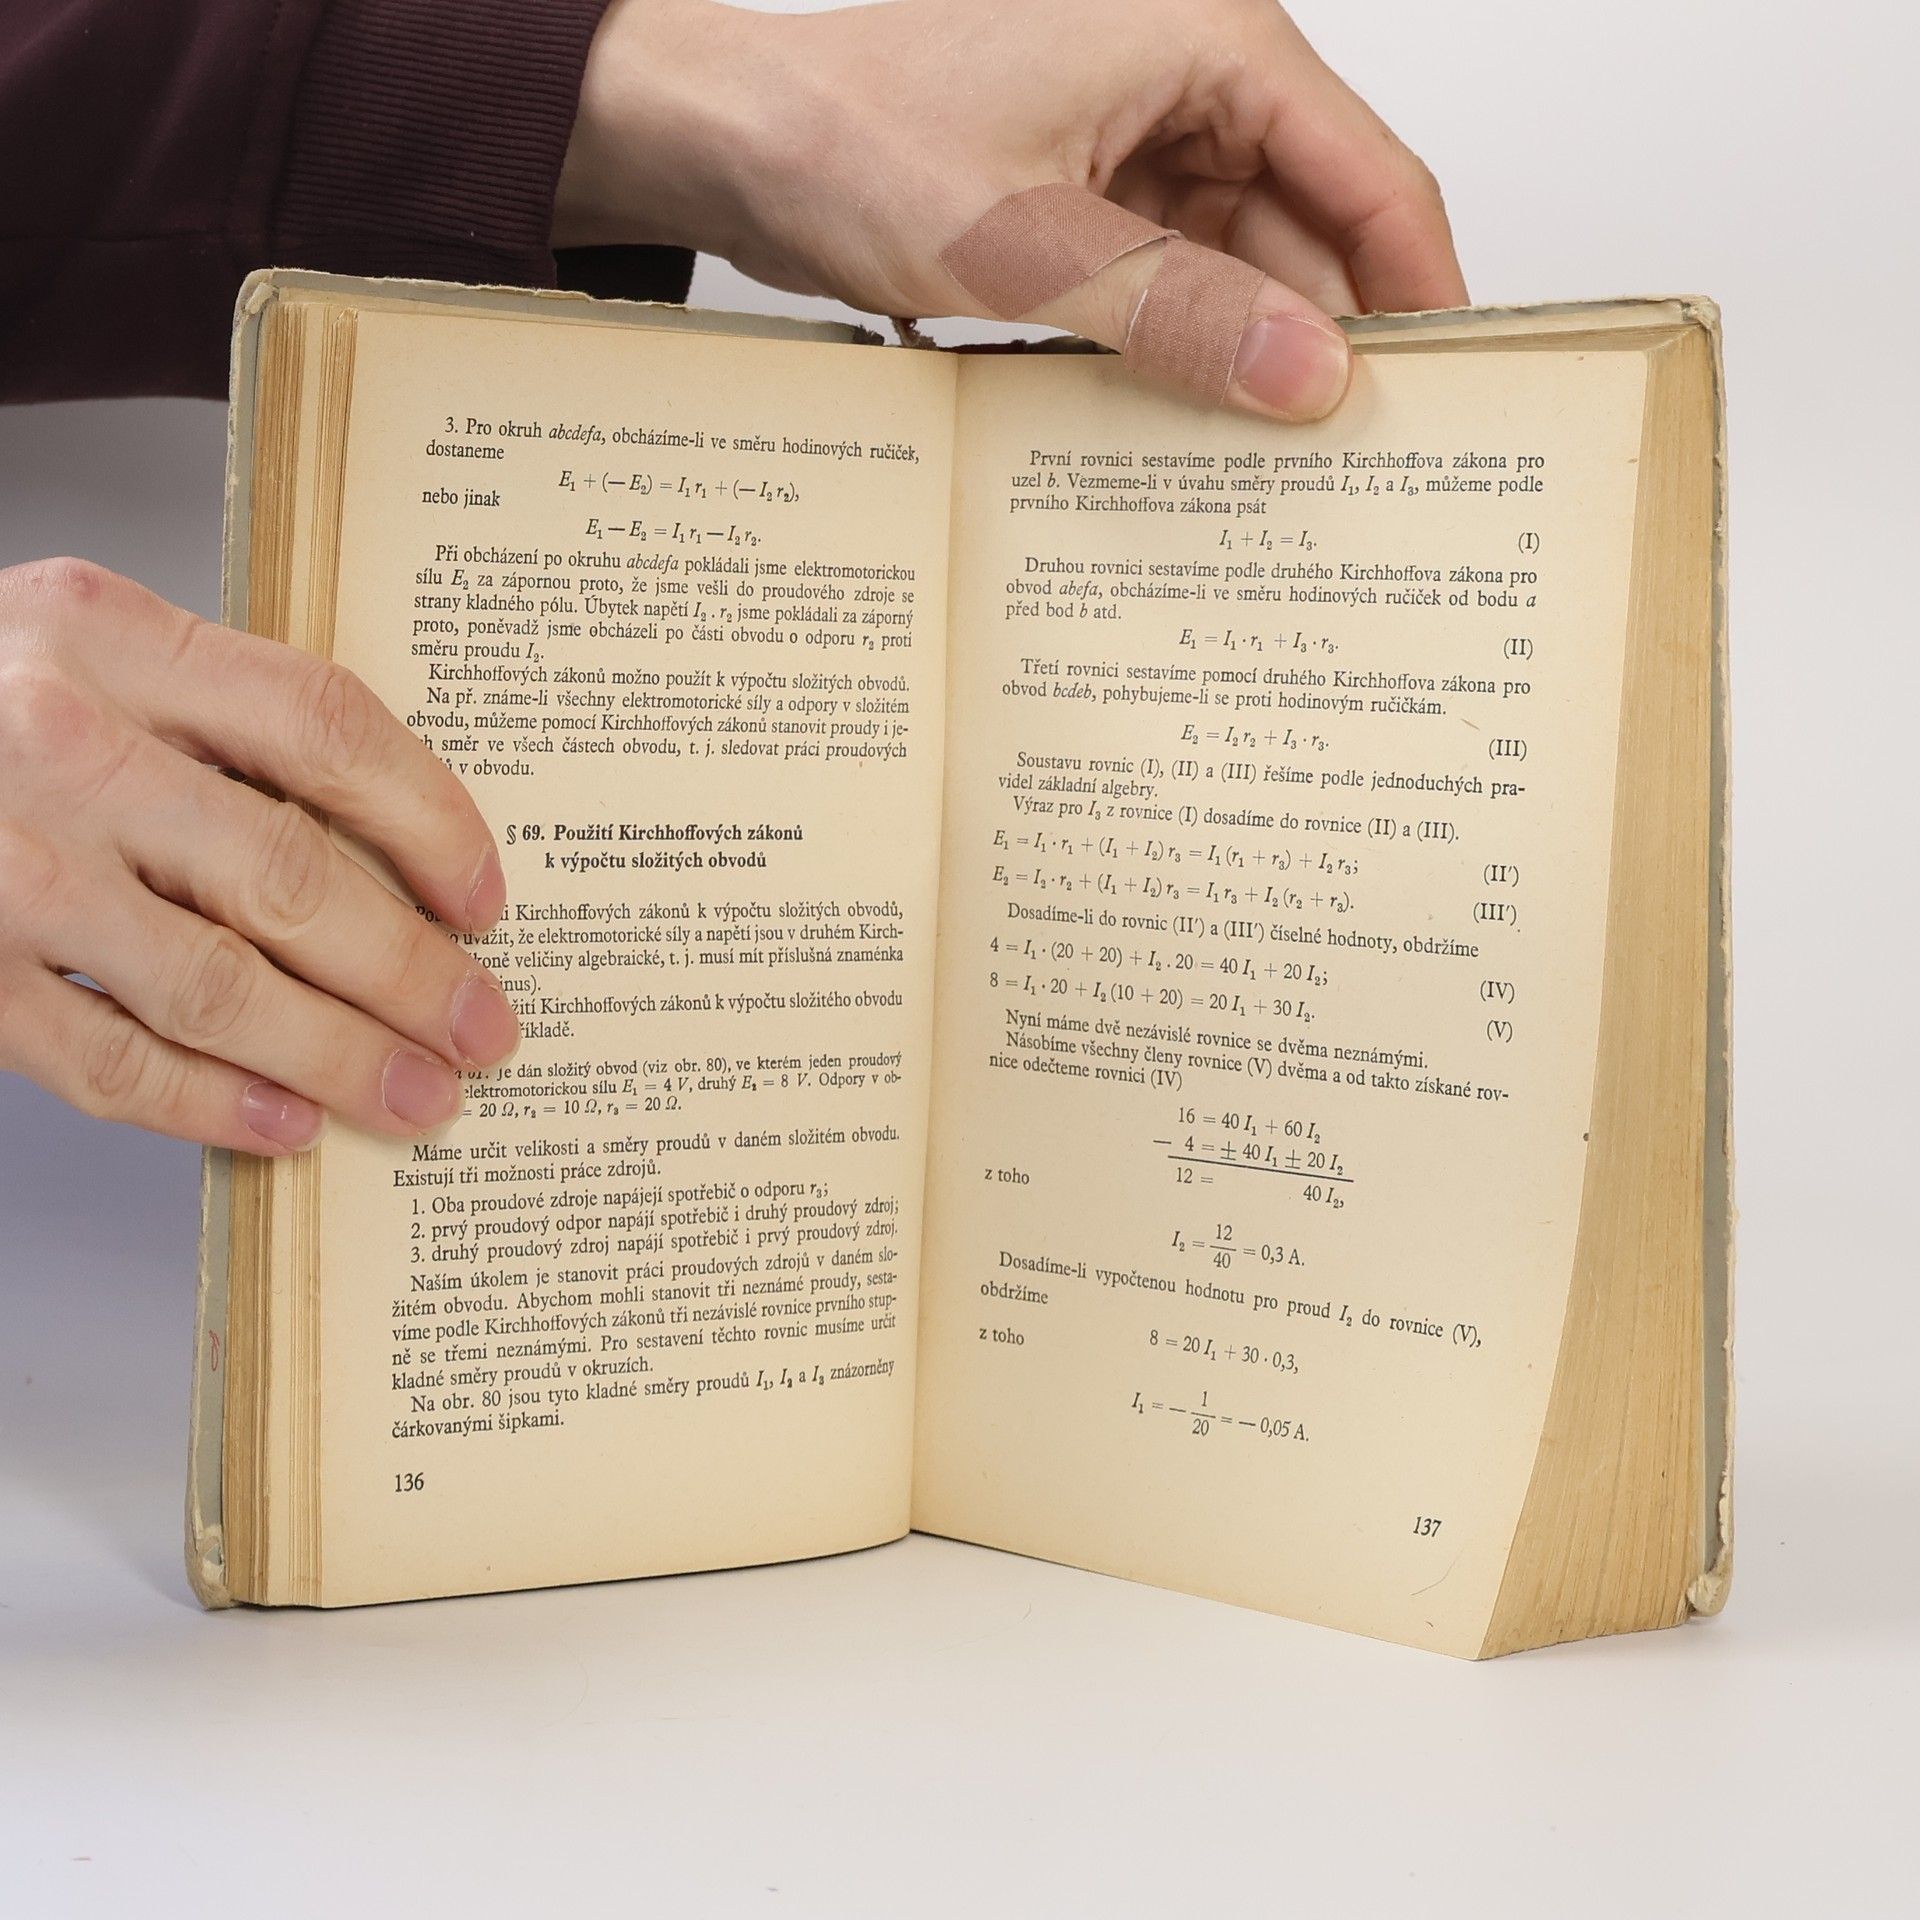 3. Pro okruh abcdefa, obcházíme-li ve směru hodinových ručiček,
dostaneme
E₁ + (— E₂) = I₁ r₁ + (— I₂ r₂),
nebo jinak
E₁ — E₂ = I₁ r₁ — I₂ r₂.
Při obcházení po okruhu abcdefa pokládali jsme elektromotorickou
sílu E₂ za zápornou proto, že jsme vešli do proudového zdroje se
strany kladného pólu. Úbytek napětí I₂ . r₂ jsme pokládali za záporný
proto, poněvadž jsme obcházeli po části obvodu o odporu r₂ proti
směru proudu I₂.
Kirchhoffových zákonů možno použít k výpočtu složitých obvodů.
Na př. známe-li všechny elektromotorické síly a odpory v složitém
obvodu, můžeme pomocí Kirchhoffových zákonů stanovit proudy i je-
směr ve všech částech obvodu, t. j. sledovat práci proudových
v obvodu.
§ 69. Použití Kirchhoffových zákonů
k výpočtu složitých obvodů
Kirchhoffových zákonů k výpočtu složitých obvodů,
uvážit, že elektromotorické síly a napětí jsou v druhém Kirch-
veličiny algebraické, t. j. musí mít příslušná znaménka
Kirchhoffových zákonů k výpočtu složitého obvodu
Je dán složitý obvod (viz obr. 80), ve kterém jeden proudový
elektromotorickou sílu E₁ = 4 V, druhý E₂ = 8 V. Odpory v ob-
= 20 Ω, r₂ = 10 Ω, r₃ = 20 Ω.
Máme určit velikosti a směry proudů v daném složitém obvodu.
Existují tři možnosti práce zdrojů.
1. Oba proudové zdroje napájejí spotřebič o odporu r₃;
2. prvý proudový odpor napájí spotřebič i druhý proudový zdroj;
3. druhý proudový zdroj napájí spotřebič i prvý proudový zdroj.
Naším úkolem je stanovit práci proudových zdrojů v daném slo-
žitém obvodu. Abychom mohli stanovit tři neznámé proudy, sesta-
víme podle Kirchhoffových zákonů tři nezávislé rovnice prvního stup-
ně se třemi neznámými. Pro sestavení těchto rovnic musíme určit
kladné směry proudů v okruzích.
Na obr. 80 jsou tyto kladné směry proudů I₁, I₂ a I₃ znázorněny
čárkovanými šipkami.
136
První rovnici sestavíme podle prvního Kirchhoffova zákona pro
uzel b. Vezmeme-li v úvahu směry proudů I₁, I₂ a I₃, můžeme podle
prvního Kirchhoffova zákona psát
I₁ + I₂ = I₃. (I)
Druhou rovnici sestavíme podle druhého Kirchhoffova zákona pro
obvod abefa, obcházíme-li ve směru hodinových ručiček od bodu a
před bod b atd.
E₁ = I₁ · r₁ + I₃ · r₃. (II)
Třetí rovnici sestavíme pomocí druhého Kirchhoffova zákona pro
obvod bcdeb, pohybujeme-li se proti hodinovým ručičkám.
E₂ = I₂ r₂ + I₃ · r₃. (III)
Soustavu rovnic (I), (II) a (III) řešíme podle jednoduchých pra-
videl základní algebry.
Výraz pro I₃ z rovnice (I) dosadíme do rovnice (II) a (III).
E₁ = I₁ · r₁ + (I₁ + I₂) r₃ = I₁ (r₁ + r₃) + I₂ r₃; (II′)
E₂ = I₂ · r₂ + (I₁ + I₂) r₃ = I₁ r₃ + I₂ (r₂ + r₃). (III′)
Dosadíme-li do rovnic (II′) a (III′) číselné hodnoty, obdržíme
4 = I₁ · (20 + 20) + I₂ . 20 = 40 I₁ + 20 I₂; (IV)
8 = I₁ · 20 + I₂ (10 + 20) = 20 I₁ + 30 I₂. (V)
Nyní máme dvě nezávislé rovnice se dvěma neznámými.
Násobíme všechny členy rovnice (V) dvěma a od takto získané rov-
nice odečteme rovnici (IV)
16 = 40 I₁ + 60 I₂
— 4 = ± 40 I₁ ± 20 I₂
z toho 12 = 40 I₂,
I₂ = 12/40 = 0,3 A.
Dosadíme-li vypočtenou hodnotu pro proud I₂ do rovnice (V),
obdržíme
8 = 20 I₁ + 30 · 0,3,
z toho
I₁ = — 1/20 = — 0,05 A.
137